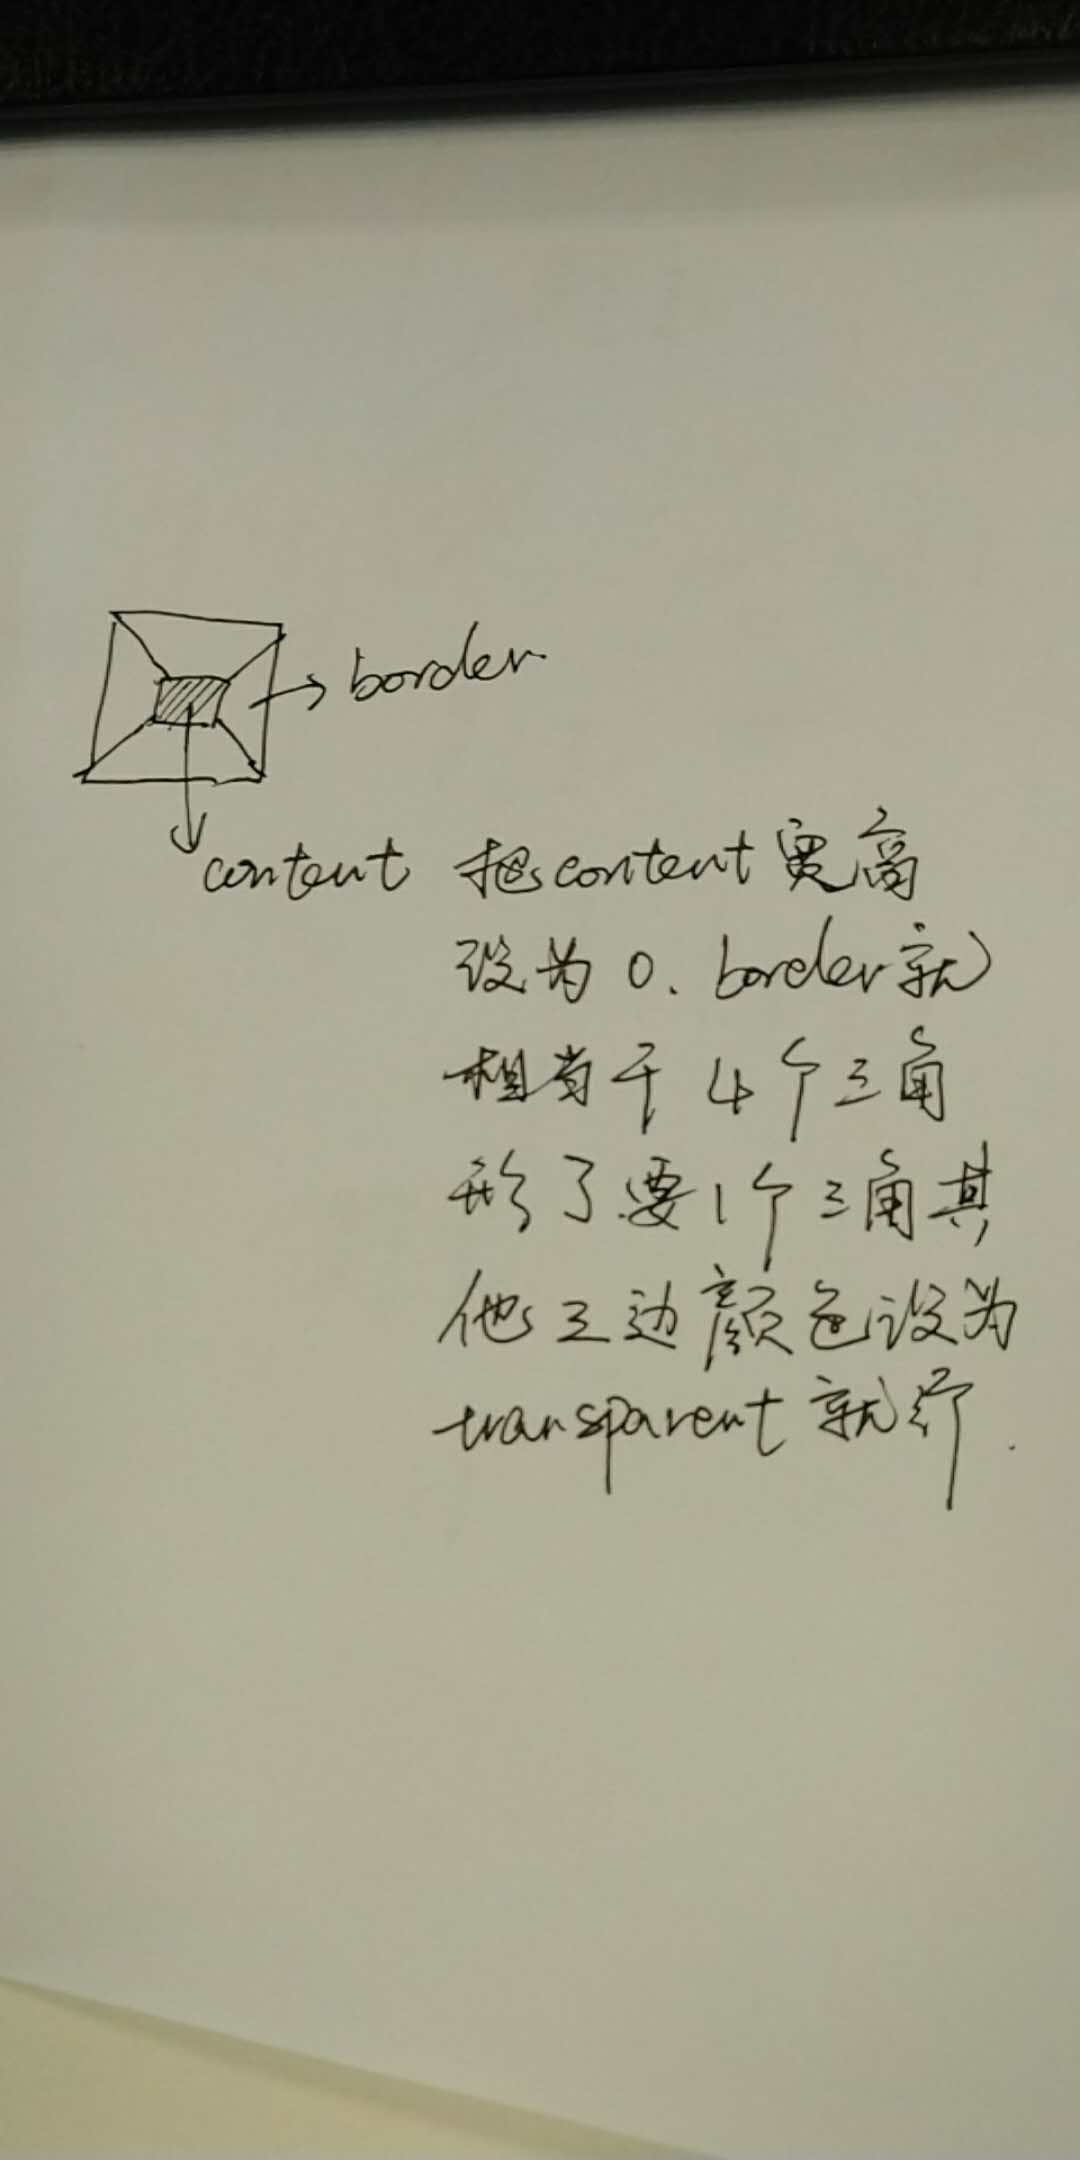 border
content 把content宽高
设为0. border就
相当于4个三角
形了要1个三角其
他三边颜色设为
transparent就行.